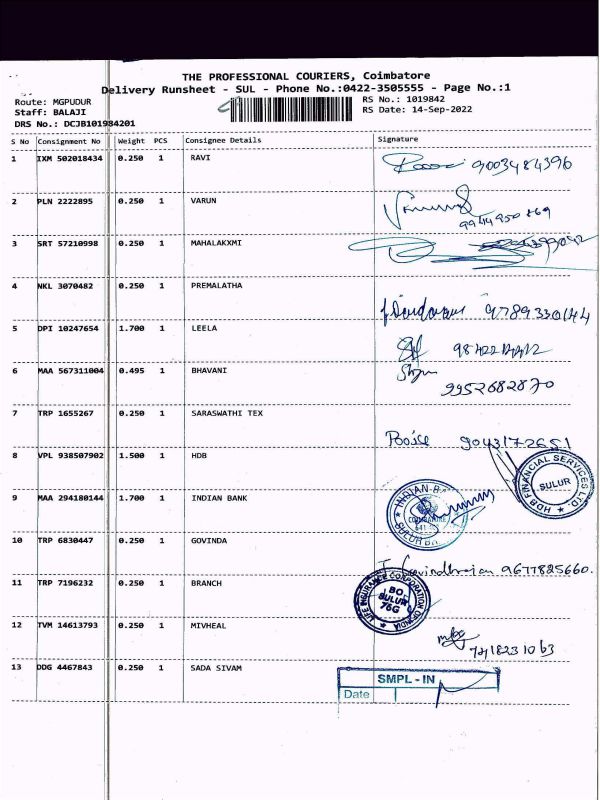 THE PROFESSIONAL COURIERS, Coimbatore
Delivery Runsheet - SUL - Phone No.:0422-3505555 - Page No.:1
Route: MGPUDUR
Staff: BALAJI
DRS No.: DCJB101984201
RS No.: 1019842
RS Date: 14-Sep-2022
S No Consignment No Weight PCS Consignee Details Signature
1 IXM 502018434 0.250 1 RAVI 9003484396
2 PLN 2222895 0.250 1 VARUN
3 SRT 57210998 0.250 1 MAHALAXMI
4 NKL 3070482 0.250 1 PREMALATHA
9789330144
5 DPI 10247654 1.700 1 LEELA
6 MAA 567311004 0.495 1 BHAVANI
9952682870
7 TRP 1655267 0.250 1 SARASWATHI TEX
9043172651
8 VPL 938507902 1.500 1 HDB
HDB FINANCIAL SERVICES LTD.
SULUR
9 MAA 294180144 1.700 1 INDIAN BANK
INDIAN BANK
COIMBATORE
SULUR
10 TRP 6830447 0.250 1 GOVINDA
9677825660.
11 TRP 7196232 0.250 1 BRANCH
LIFE INSURANCE CORPORATION OF INDIA
BO.
SULUR
76G
12 TVM 14613793 0.250 1 MIVHEAL
13 DDG 4467843 0.250 1 SADA SIVAM
SMPL - IN
Date